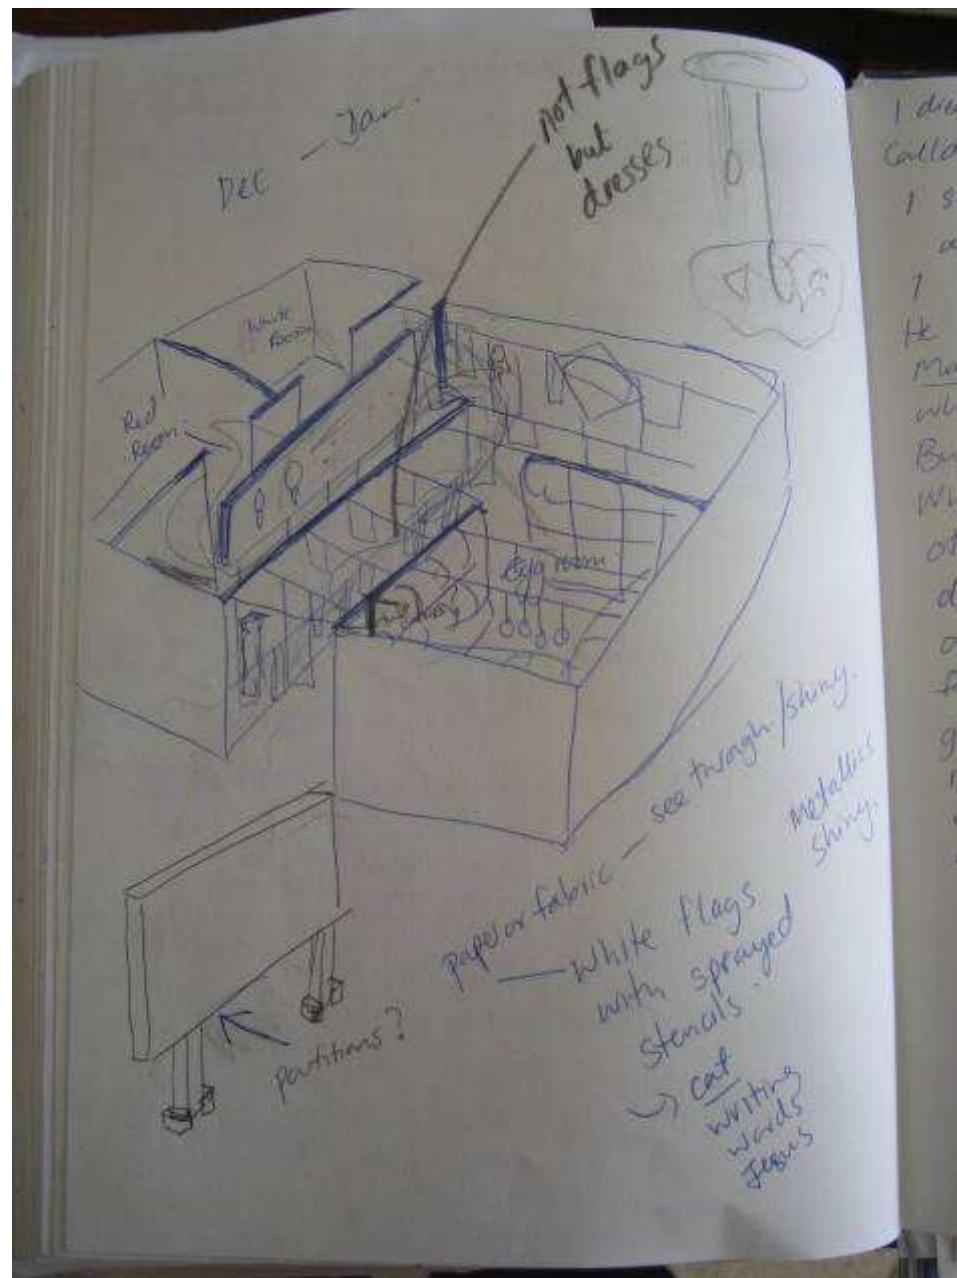 DEC — Jan.
not flags
but
dresses
White
Room
Red
Room
Egg room
paper or fabric — see through/shiny.
metallics
shiny.
— White flags
with sprayed
stencils.
→ cat
writing
words
Jesus
partitions?
I
Calla
I s
I
He